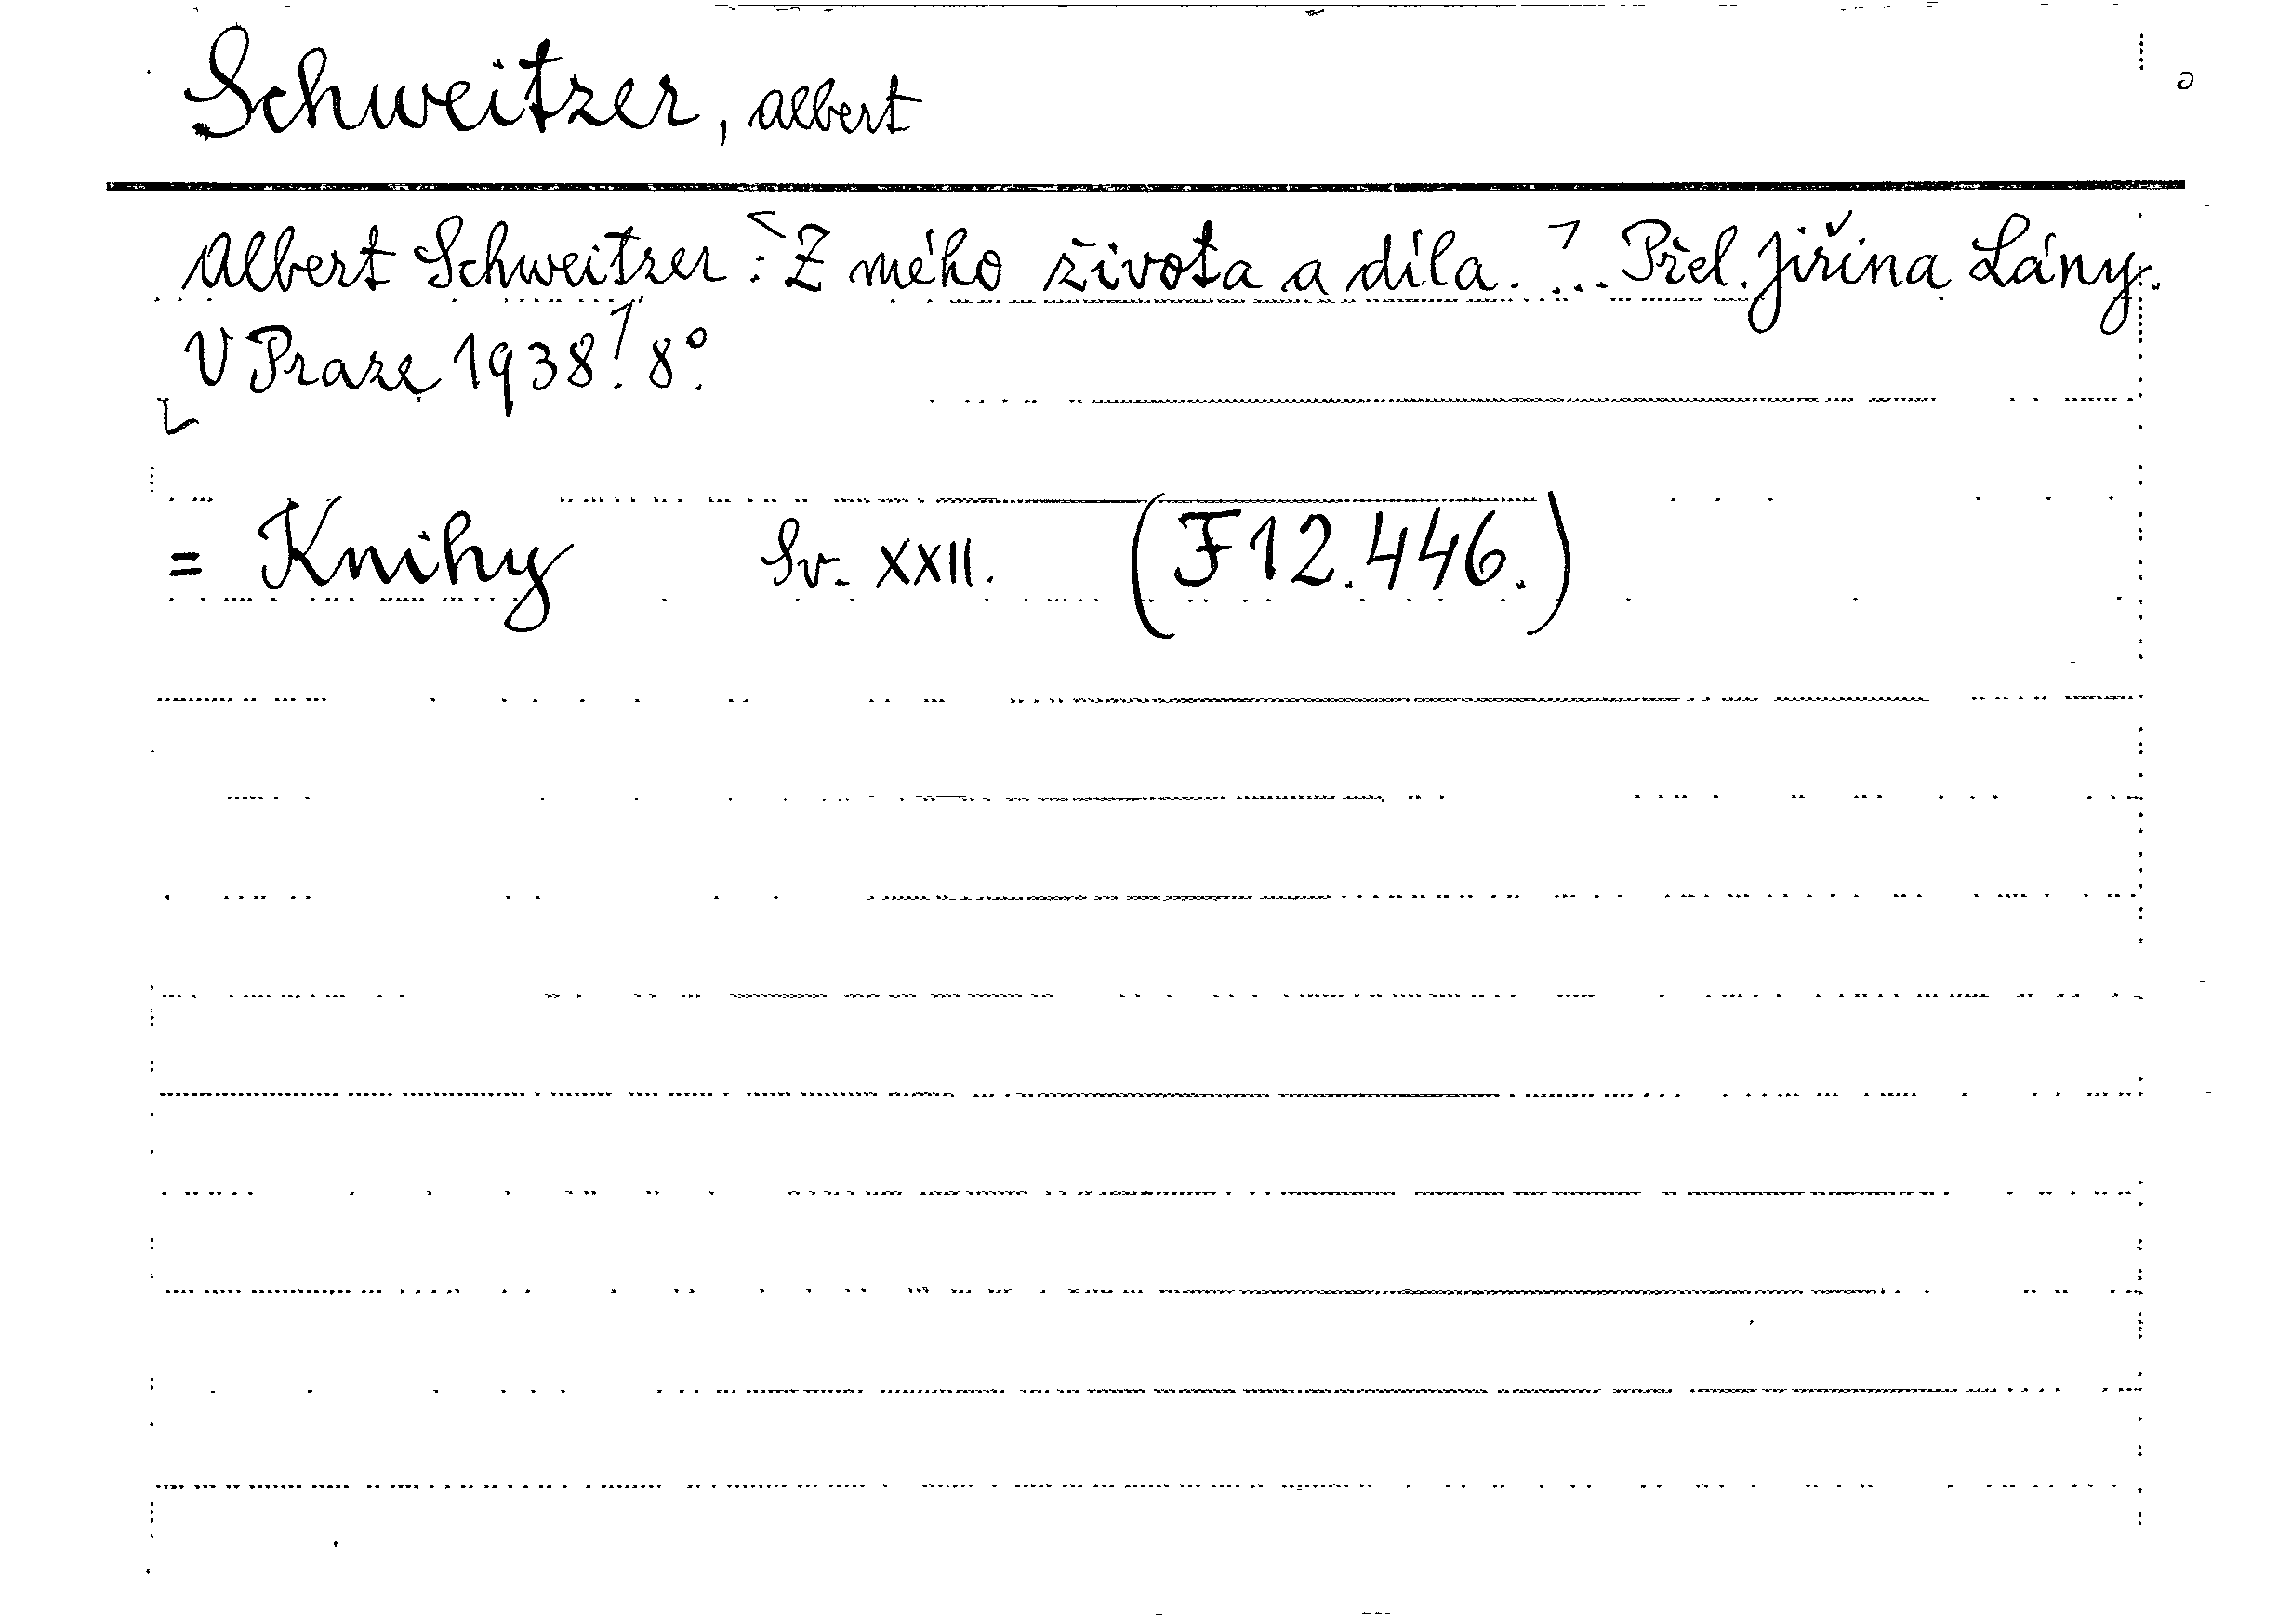 Schweitzer, Albert
Albert Schweitzer: Z mého života a díla. ... Přel. Jiřina Lány.
V Praze 1938. 8°.
= Knihy Sv. XXII. (F12.446.)